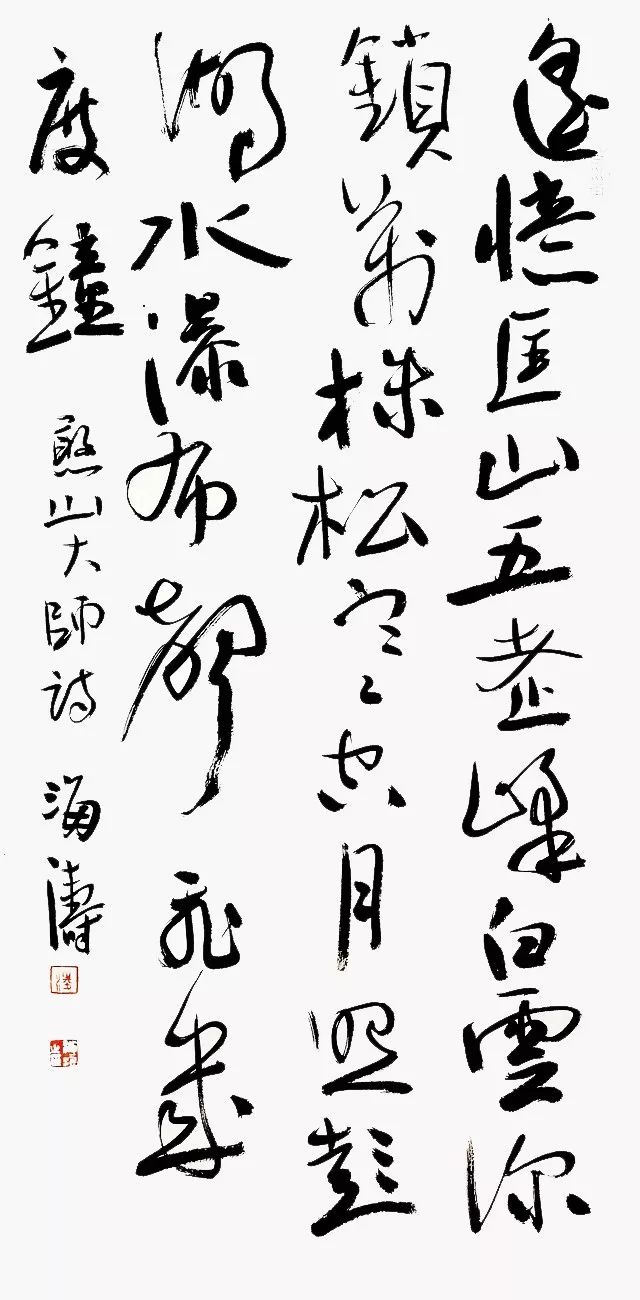 遙憶匡山五老峰白雲深
鎖萬株松寒空月照彭
湖水瀑布聲飛幾
度鐘 憨山大師詩 海濤